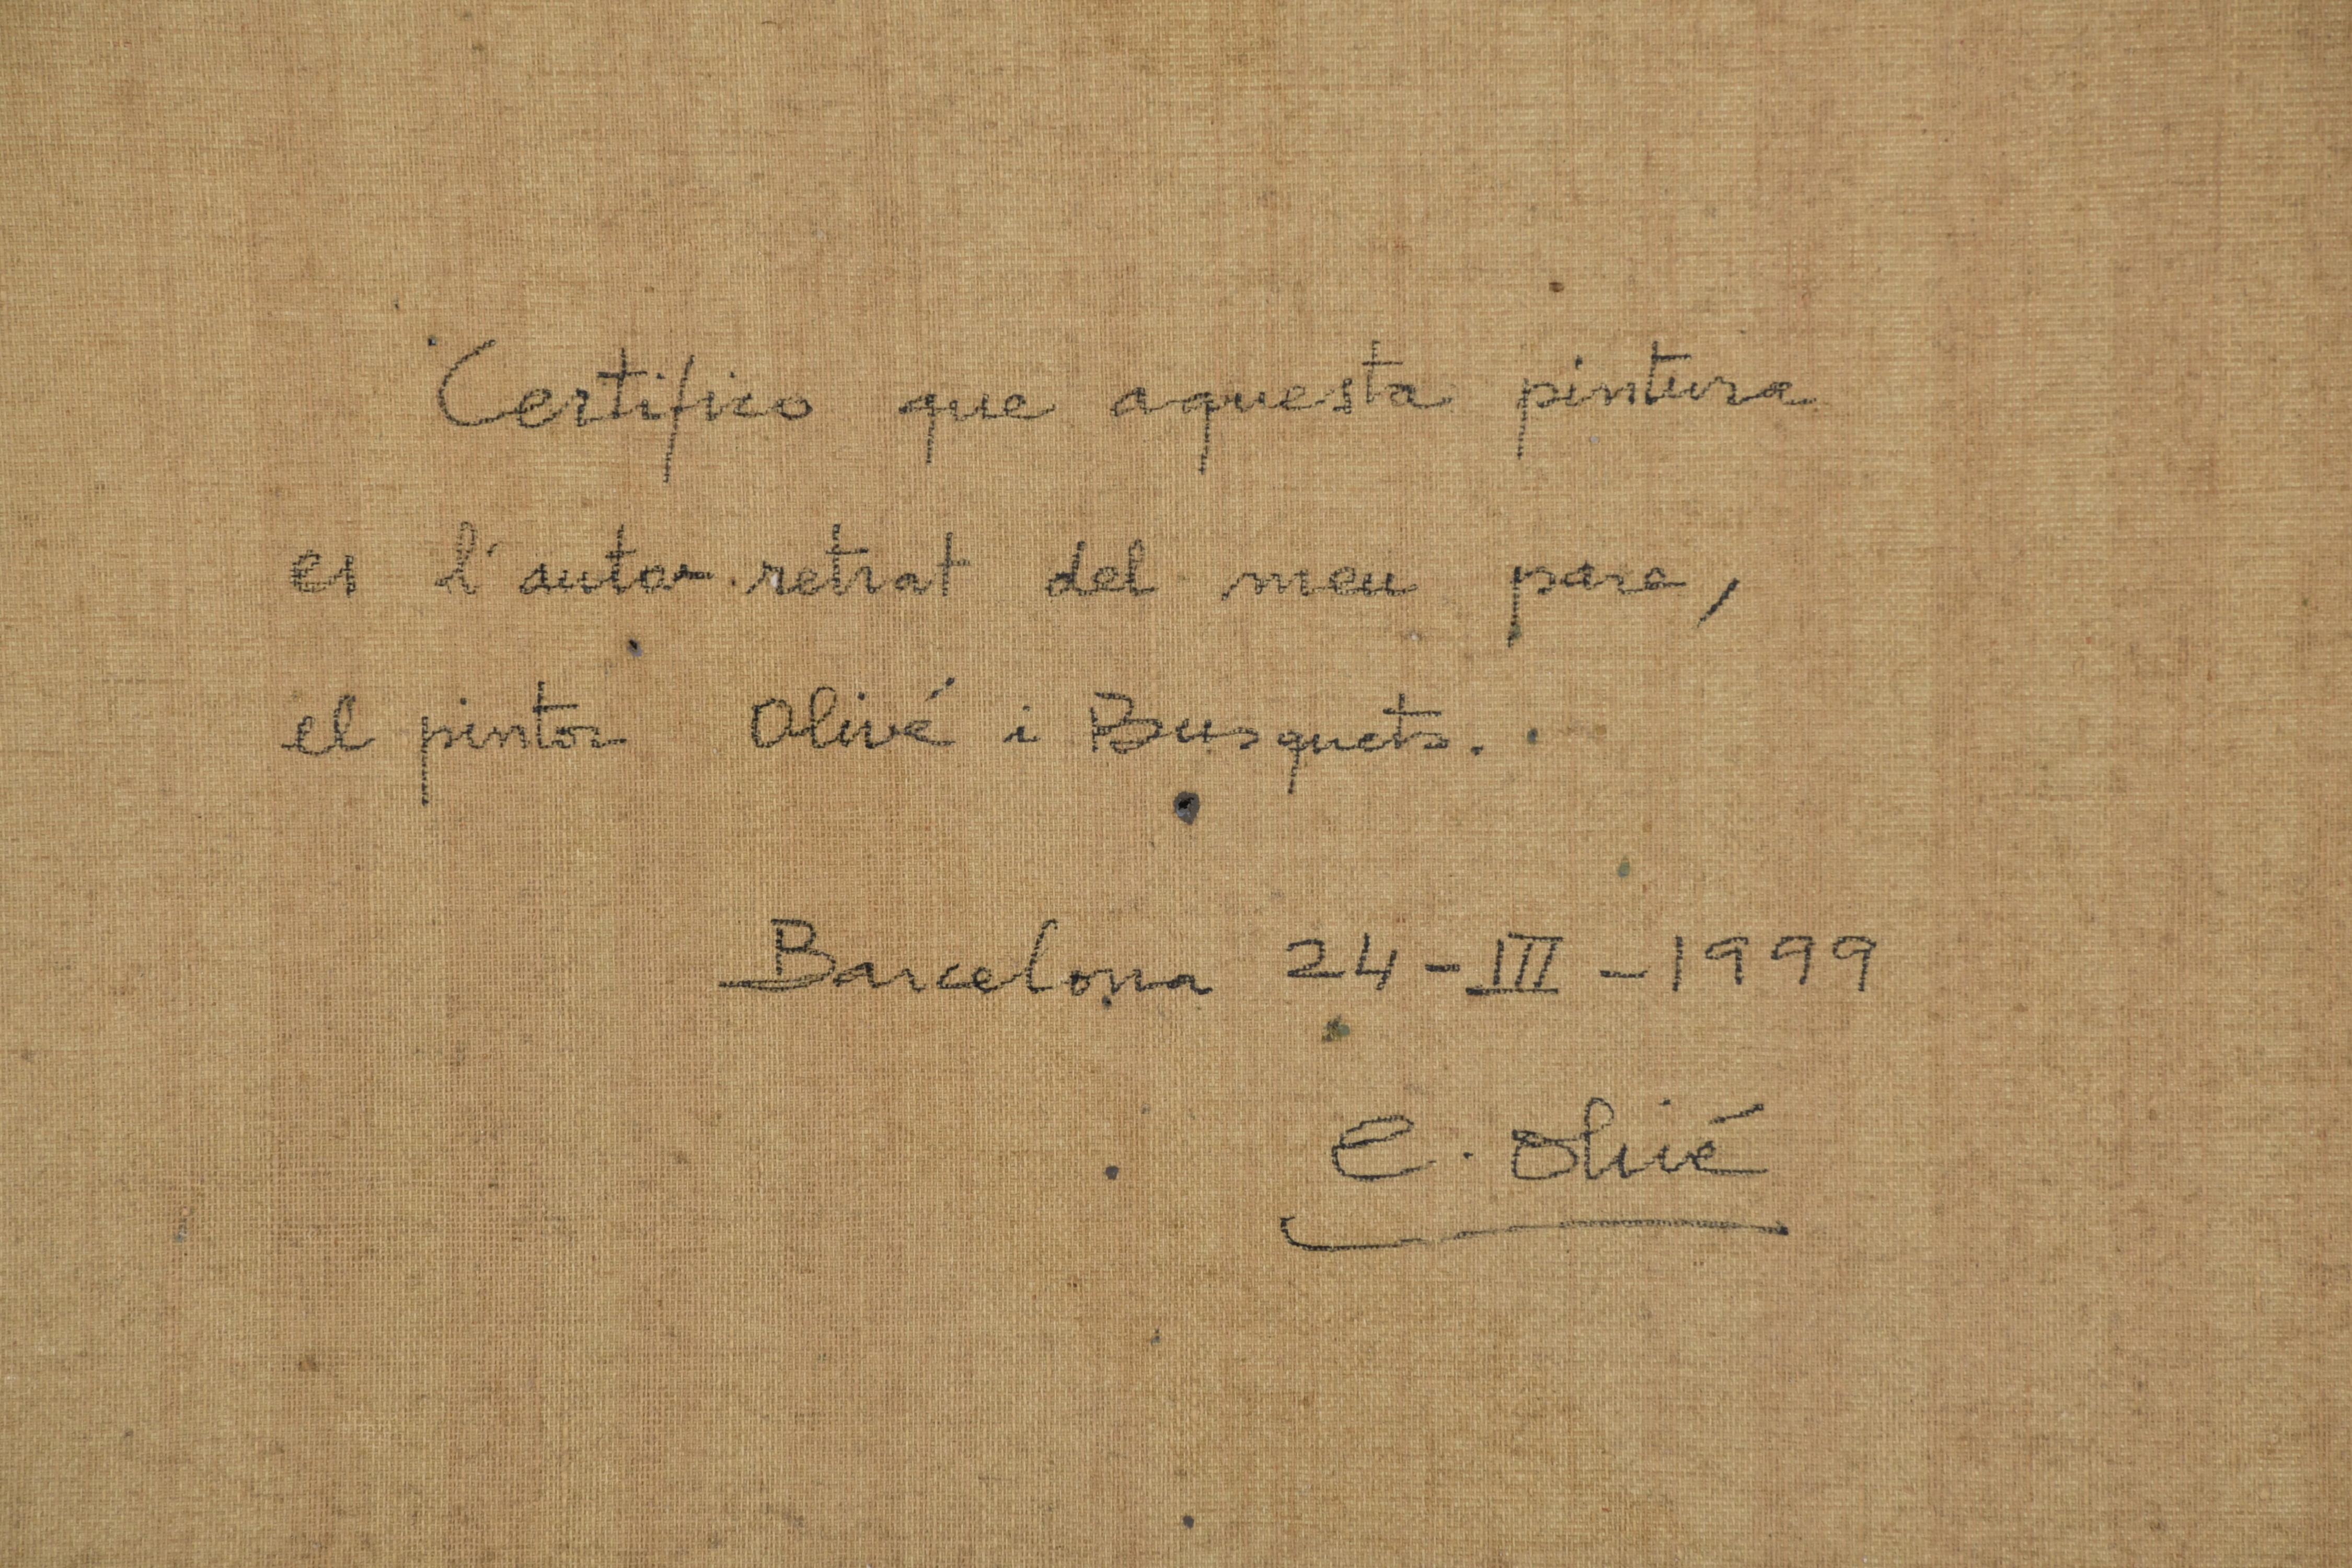 Certifico que aquesta pintura
es l'auto-retrat del meu pare,
el pintor Olivé i Busquets.
Barcelona 24-III-1999
E. Olivé